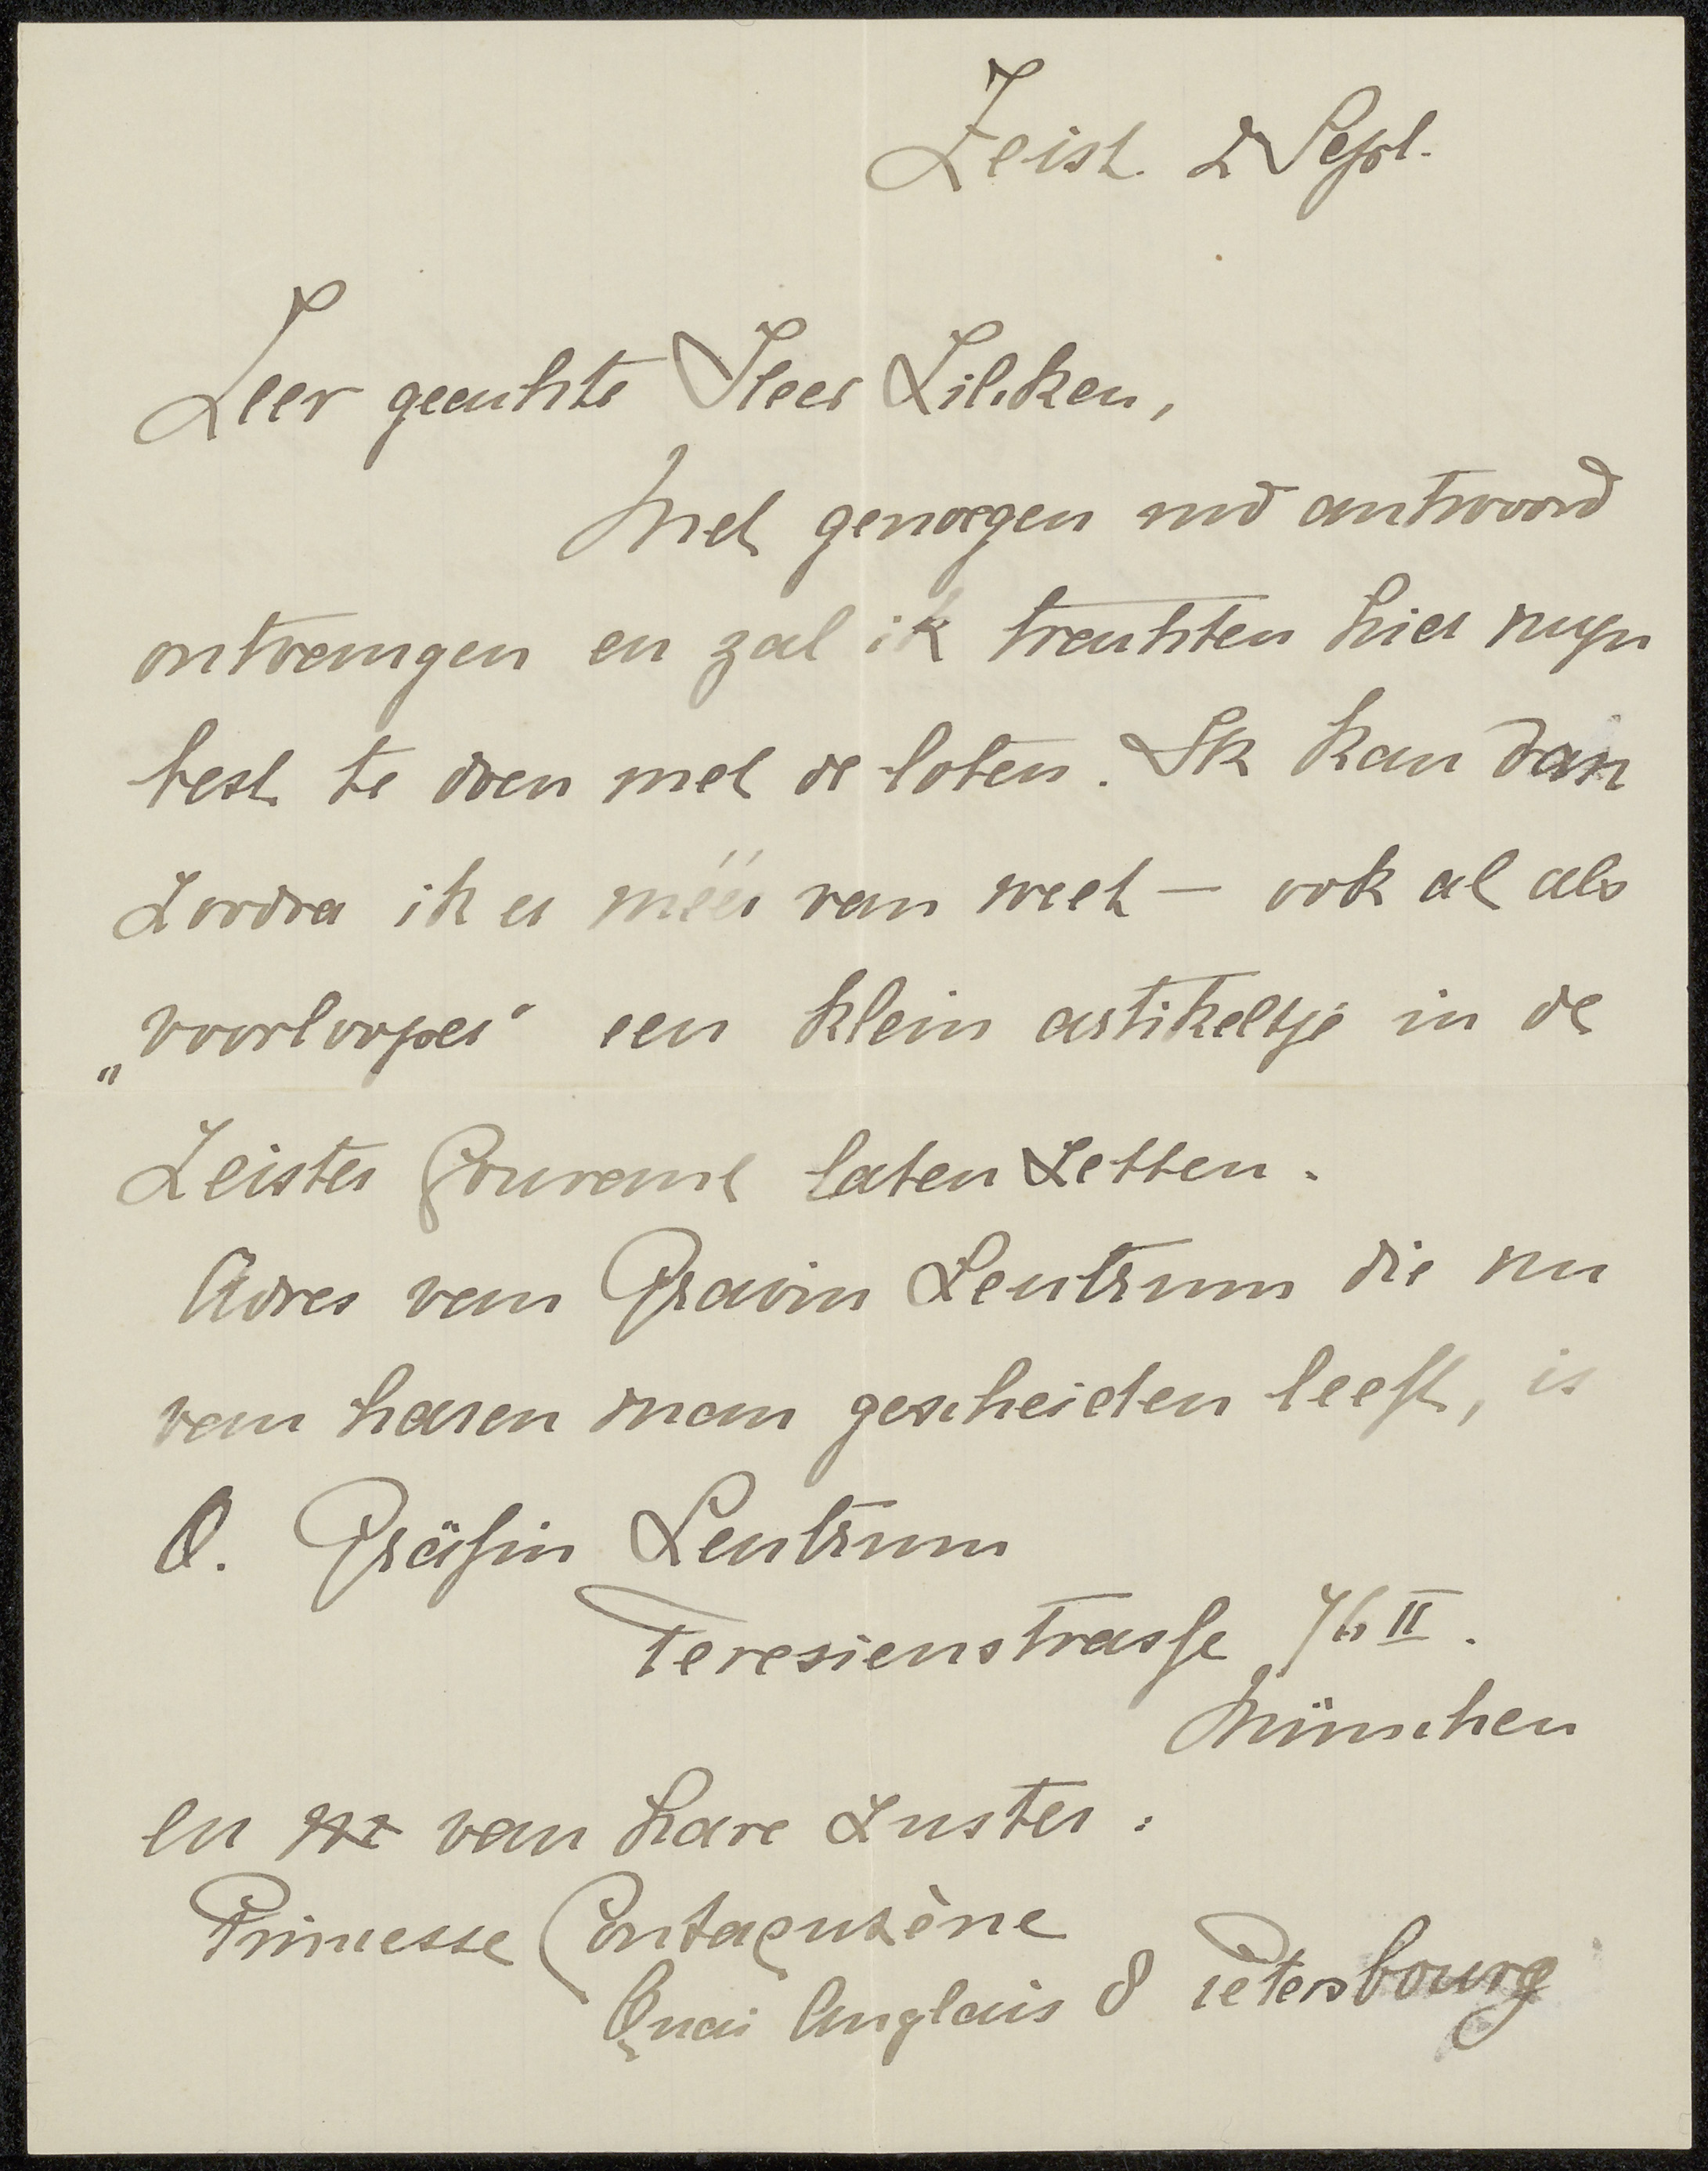 Zeist. 2 Sept.
Zeer geachte Heer Zilcken,
Met genoegen uw antwoord
ontvangen en zal ik trachten hier mijn
best te doen met de loten. Ik kan dan
zoodra ik er méér van weet — ook al als
„voorlooper" een klein artikeltje in de
Zeister Courant laten zetten.
Adres van Gravin Leutrum die nu
van haren man gescheiden leeft, is
O. Gräfin Leutrum
Teresienstrasse 76 II.
München
en van hare zuster:
Princesse Contacuzène
Quai Anglais 8 Petersbourg